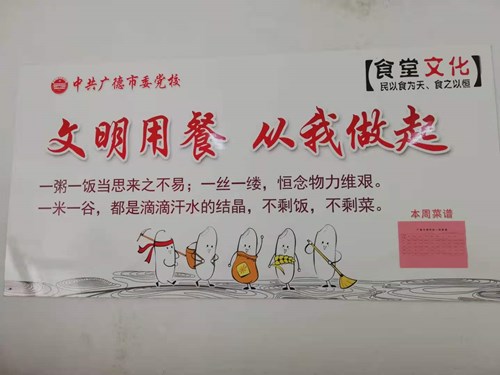 中共广德市委党校
【食堂文化】
民以食为天、食之以恒
文明用餐 从我做起
一粥一饭当思来之不易；一丝一缕，恒念物力维艰。
一米一谷，都是滴滴汗水的结晶，不剩饭，不剩菜。
本周菜谱